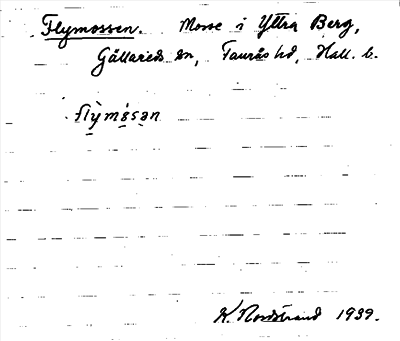 Flymossen. Mosse i Yttra Berg,
Gällareds sn, Faurås hd, Hall. l.
flỳmåsan
K. Nordstrand 1939.